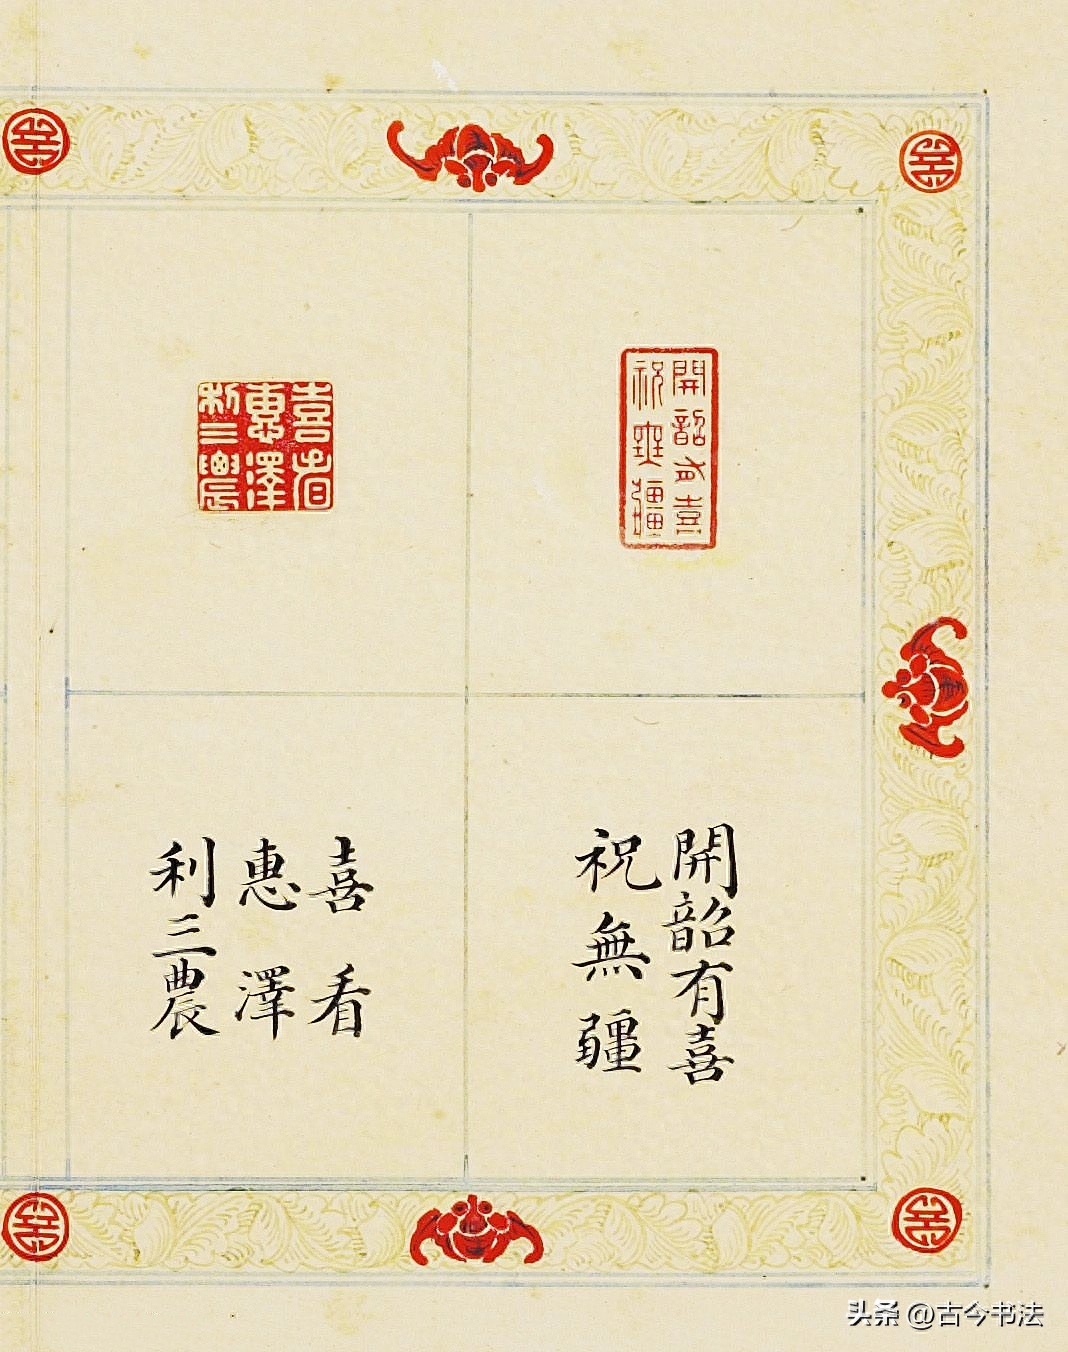 開韶有喜
祝無疆
開韶有喜
祝無疆
喜看
惠澤
利三農
喜看
惠澤
利三農
头条 @古今书法